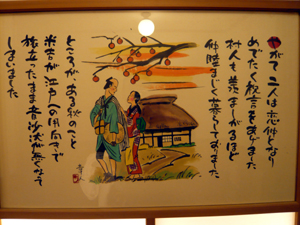 やがて二人は恋仲となり
めでたく祝言をあげました
村人も羨ましがるほど
仲睦まじく暮らしておりました
ところが、ある秋のこと
米吉が江戸への用向きで
旅立ったまま音沙汰が無くなって
しまいました